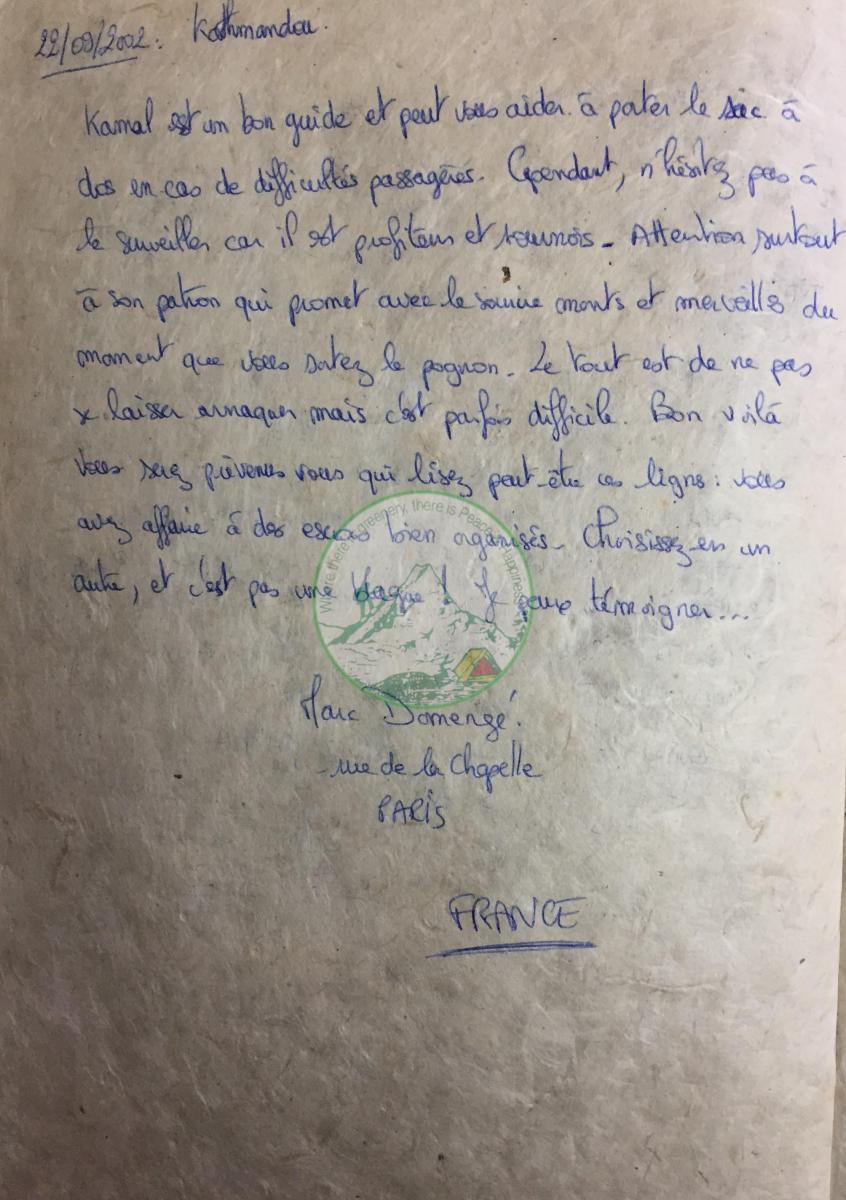 22/09/2002. Kathmandou.
Kamal est un bon guide et peut vous aider à porter le sac à
dos en cas de difficultés passagères. Cependant, n'hésitez pas à
le surveiller car il est profiteur et sournois. Attention surtout
à son patron qui promet avec le sourire monts et merveilles du
moment que vous sortez le pognon. Le tout est de ne pas
se laisser arnaquer mais c'est parfois difficile. Bon voilà
vous serez prévenus vous qui lisez peut-être ces lignes : vous
avez affaire à des escrocs bien organisés. Choisissez-en un
autre, et c'est pas une blague ! Je peux témoigner...
Where there is greenery, there is Peace & Happiness
Marc Domengé.
rue de la Chapelle
PARIS
FRANCE